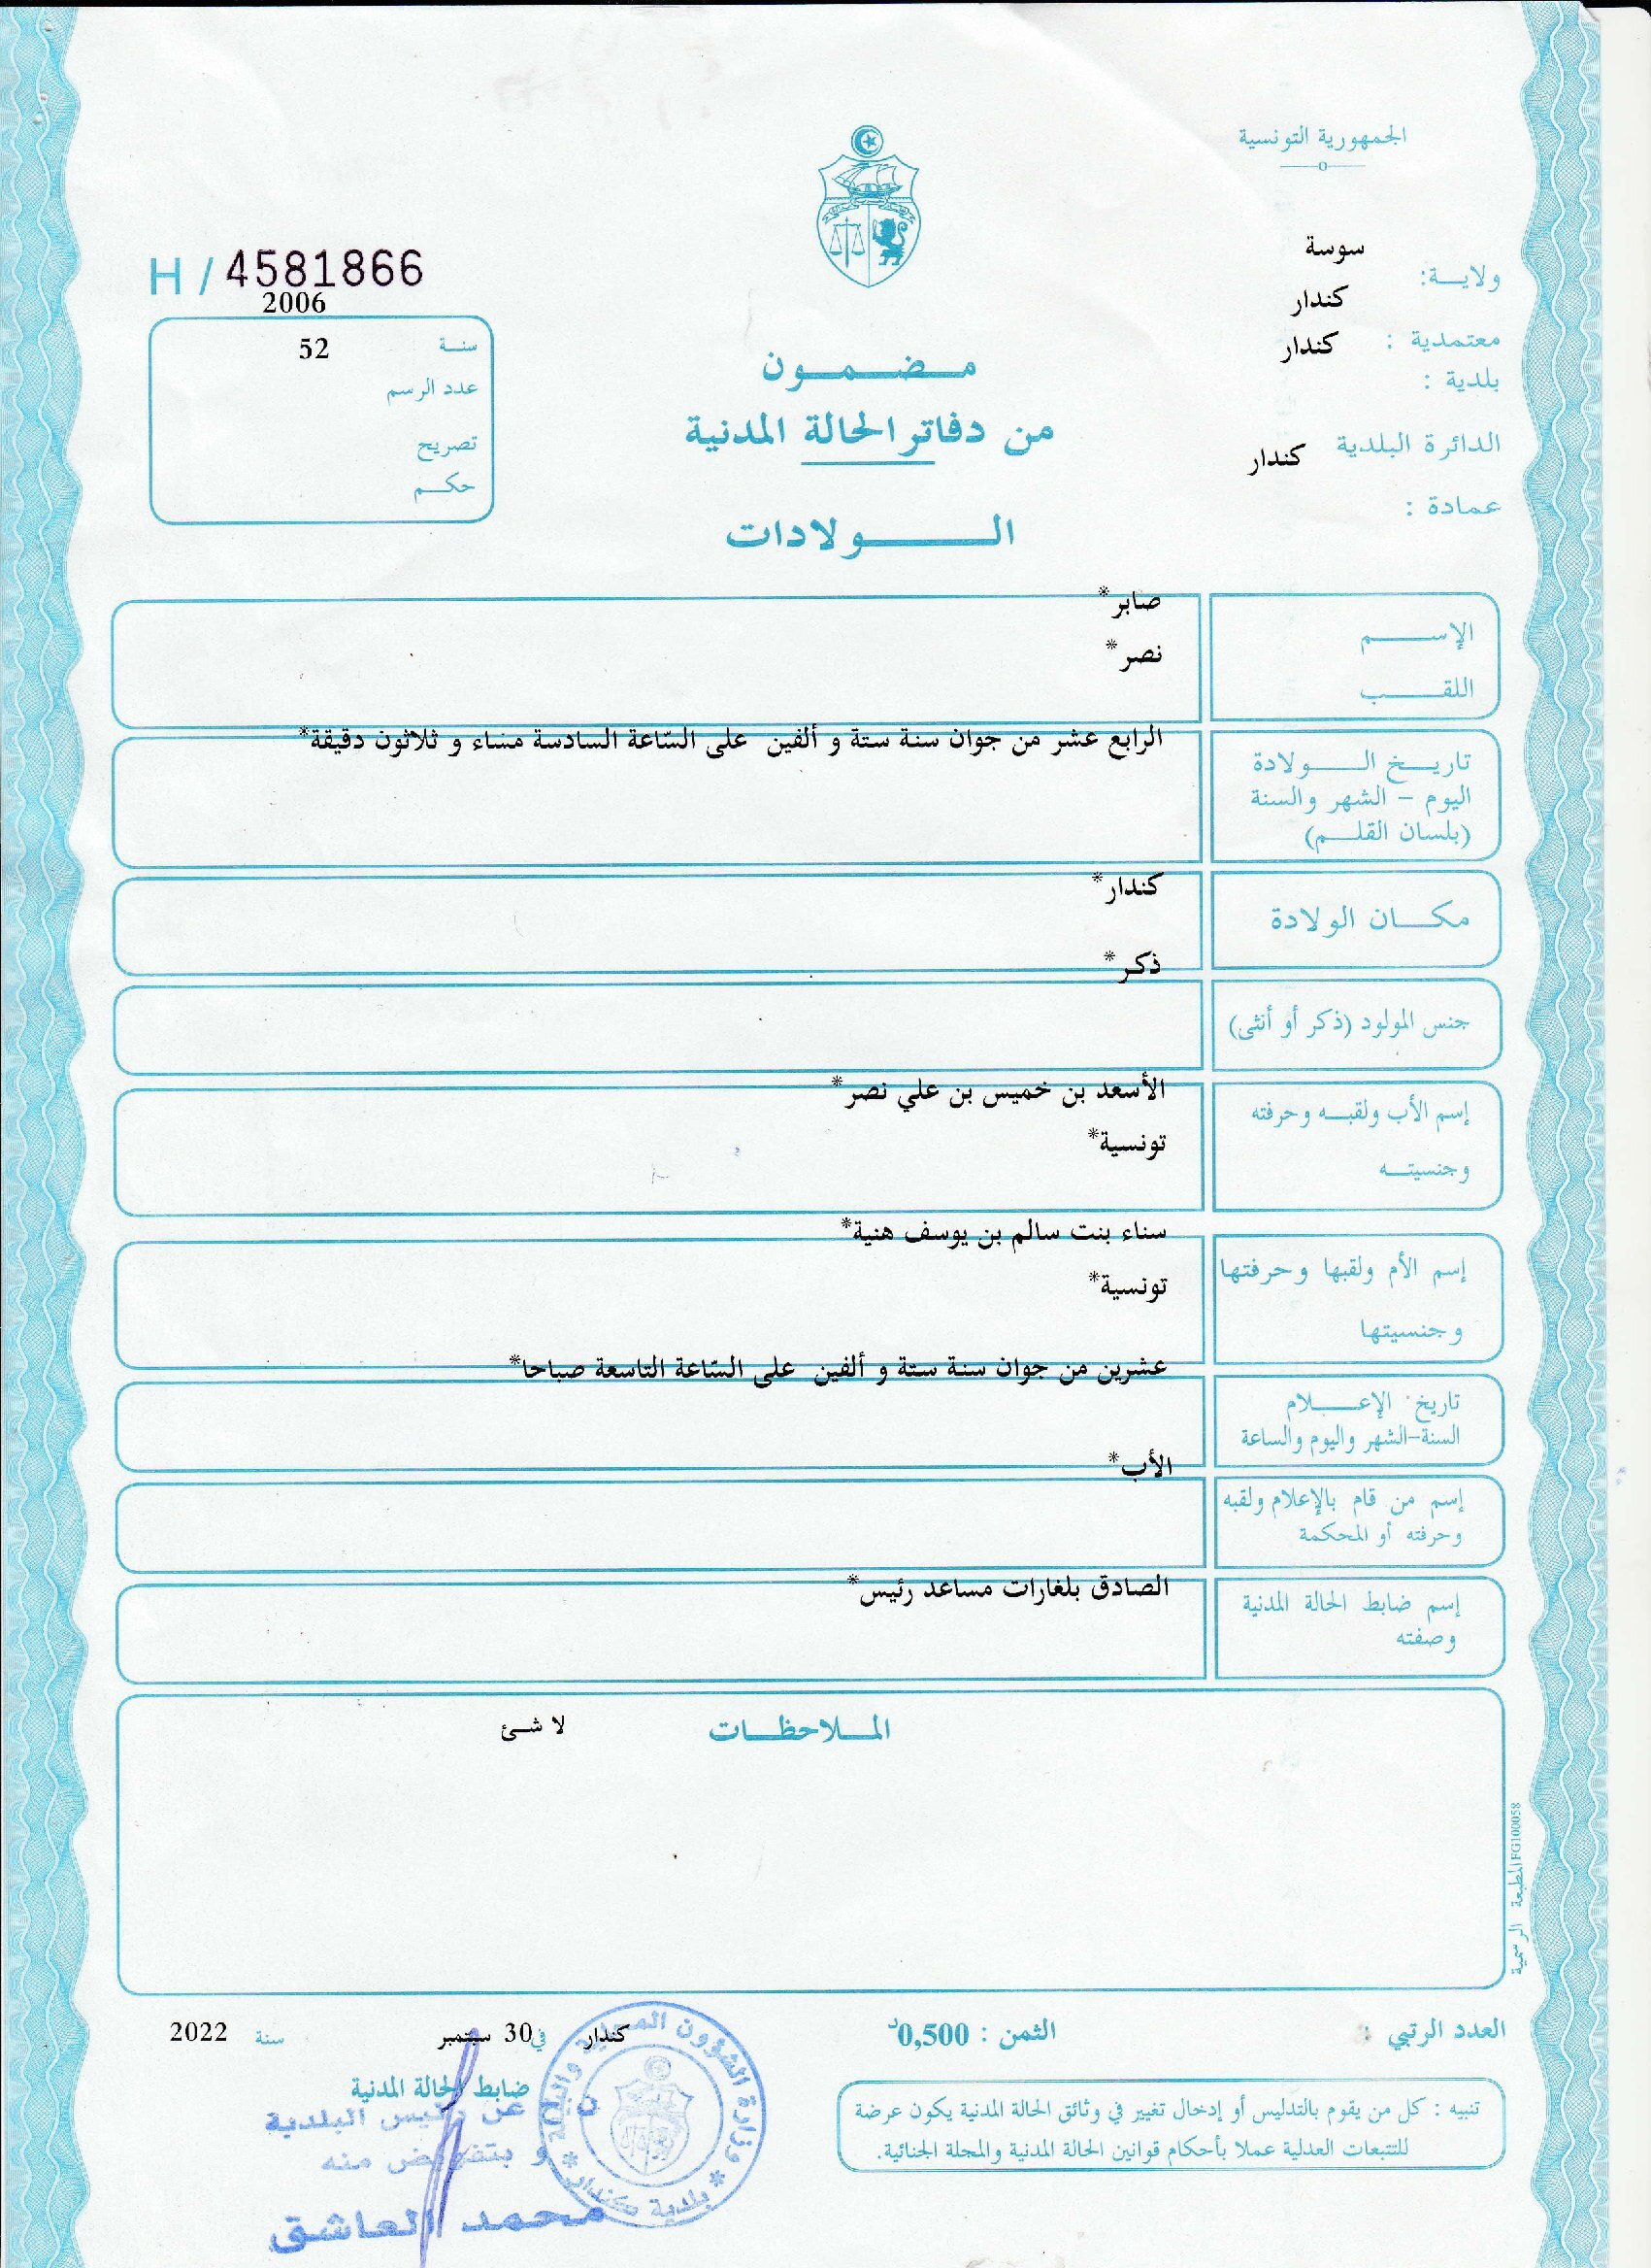 الجمهورية التونسية
ولاية: سوسة
معتمدية : كندار
بلدية : كندار
الدائرة البلدية كندار
عمادة :
H / 4581866
2006
سنة
52
عدد الرسم
تصريح
حكم
مضمون
من دفاتر الحالة المدنية
الولادات
الإسم صابر*
اللقب نصر*
تاريخ الولادة الرابع عشر من جوان سنة ستة و ألفين على السّاعة السادسة مساء و ثلاثون دقيقة*
اليوم - الشهر والسنة
(بلسان القلم)
مكان الولادة كندار*
جنس المولود (ذكر أو أنثى) ذكر*
إسم الأب ولقبه وحرفته الأسعد بن خميس بن علي نصر*
وجنسيته تونسية*
إسم الأم ولقبها وحرفتها سناء بنت سالم بن يوسف هنية*
وجنسيتها تونسية*
تاريخ الإعلام عشرين من جوان سنة ستة و ألفين على السّاعة التاسعة صباحا*
السنة-الشهر واليوم والساعة
إسم من قام بالإعلام ولقبه الأب*
وحرفته أو المحكمة
إسم ضابط الحالة المدنية الصادق بلغارات مساعد رئيس*
وصفته
الملاحظات لا شئ
المطبعة الرسمية FG100058
العدد الرتبي :
الثمن : 0,500د
كندار في 30 سبتمبر سنة 2022
ضابط الحالة المدنية
عن رئيس البلدية
و بتفويض منه
محمد العاشق
وزارة الشؤون المحلية والبيئة
* بلدية كندار *
تنبيه : كل من يقوم بالتدليس أو إدخال تغيير في وثائق الحالة المدنية يكون عرضة
للتتبعات العدلية عملا بأحكام قوانين الحالة المدنية والمجلة الجنائية.